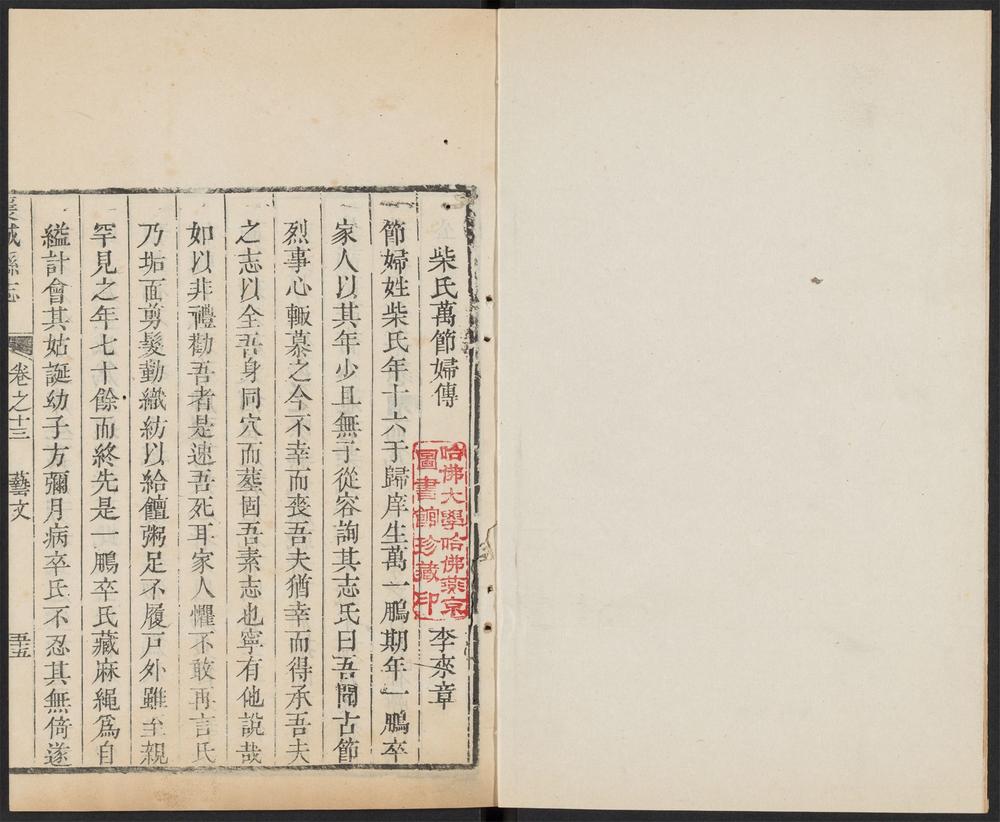 柴氏萬節婦傳 李來章
節婦姓柴氏年十六于歸庠生萬一鵬期年一鵬卒
家人以其年少且無子從容詢其志氏曰吾聞古節
烈事心輙慕之今不幸而喪吾夫猶幸而得承吾夫
之志以全吾身同穴而塟固吾素志也寧有他說哉
如以非禮勸吾者是速吾死耳家人懼不敢再言氏
乃垢面剪髮勤織紡以給饘粥足不履戸外雖至親
罕見之年七十餘而終先是一鵬卒氏藏麻繩爲自
縊計會其姑誕幼子方彌月病卒氏不忍其無倚遂
襄城縣志 卷之十三 藝文 五五
哈佛大學哈佛燕京
圖書館珍藏印